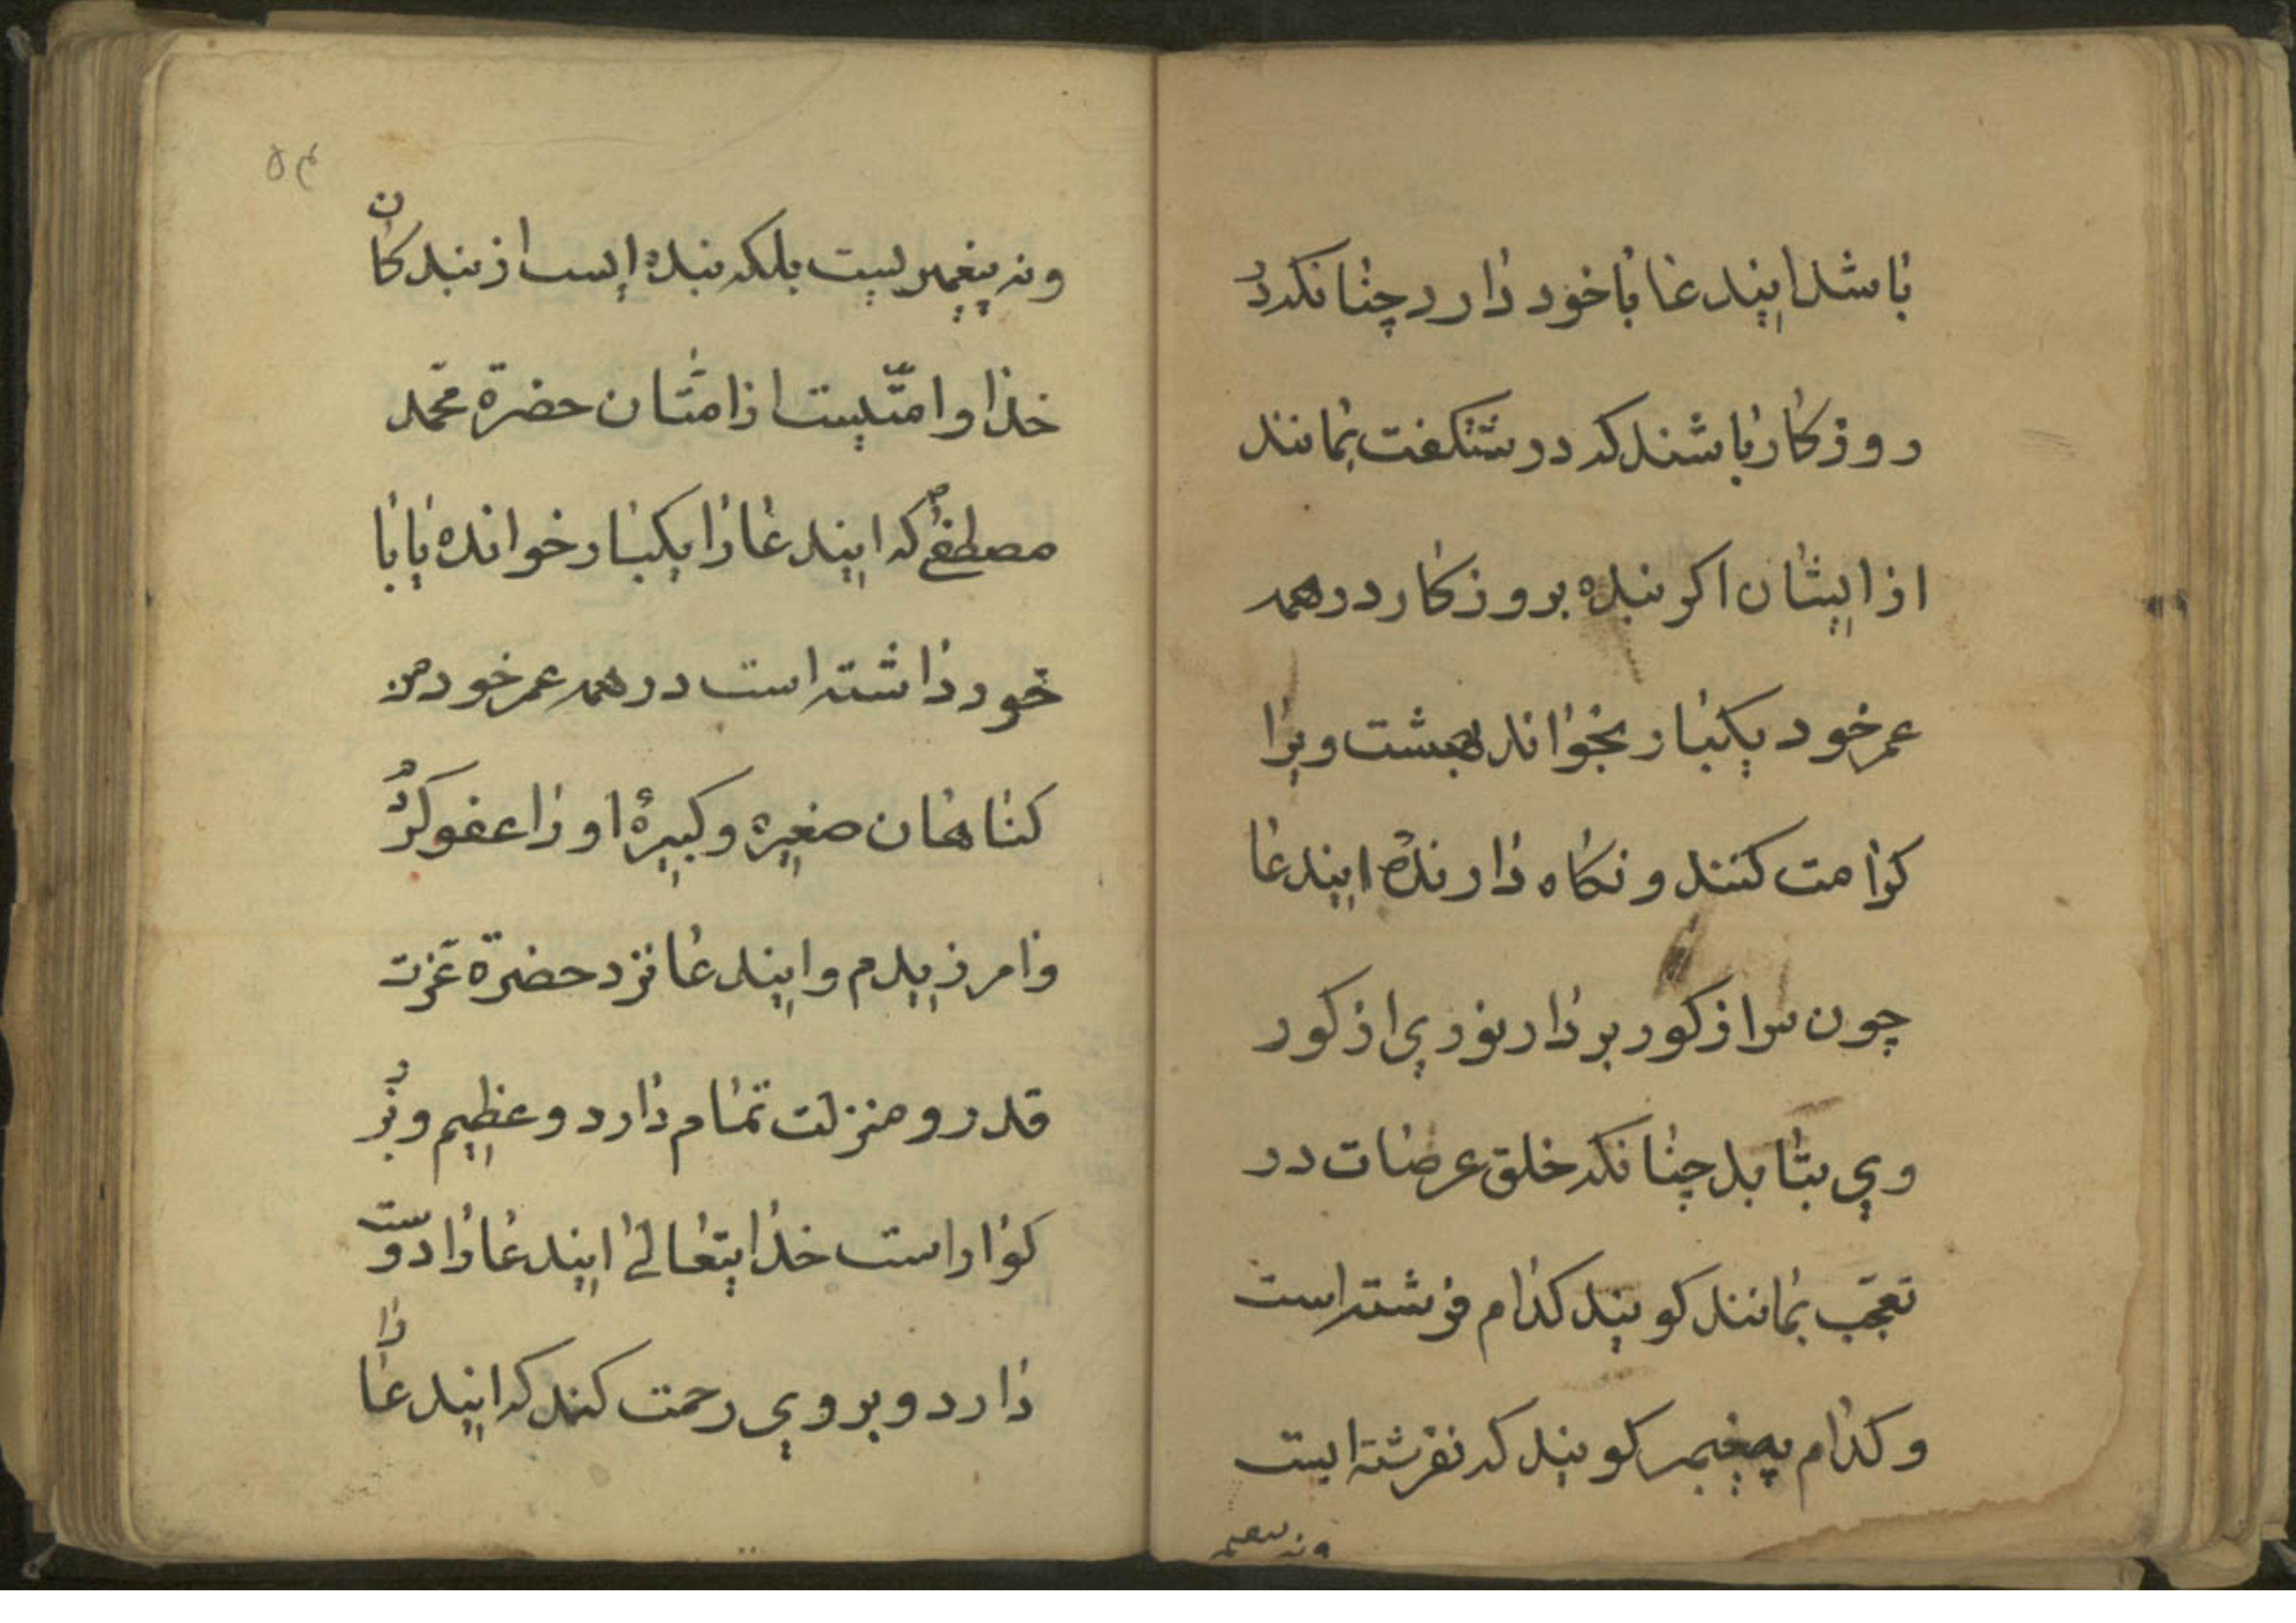 باشد ایندعا با خود دارد چنانکه در
روزکار باشند که در شکفت بمانند
از ایشان اکر بنده بروزکار در همه
عمر خود یکبار بخواند بهشت ویرا
کرامت کنند و نکاه دارندهٔ ایندعا
چون سر از کور بردارد نوری از کور
وی بتابد چنانکه خلق عرصات در
تعجّب بمانند کویند کدام فرشته است
و کدام پیغمبر کویند که نفرشته ایست
ونه پیغمبر
۵۴
ونه پیغمبریست بلکه بندهٔ ایست از بندکان
خدا و امّتیست از امتّان حضرة محمّد
مصطفی ص که ایندعا را یکبار خوانده یا با
خود داشته است در همه عمر خود من
کناهان صغیره و کبیرهٔ او را عفو کرد
وامرزیدم و ایندعا نزد حضرة عزّت
قدر و منزلت تمام دارد و عظیم و بزر
کوار است خدایتعالی ایندعا را دوست
دارد و بروی رحمت کند که ایندعا را